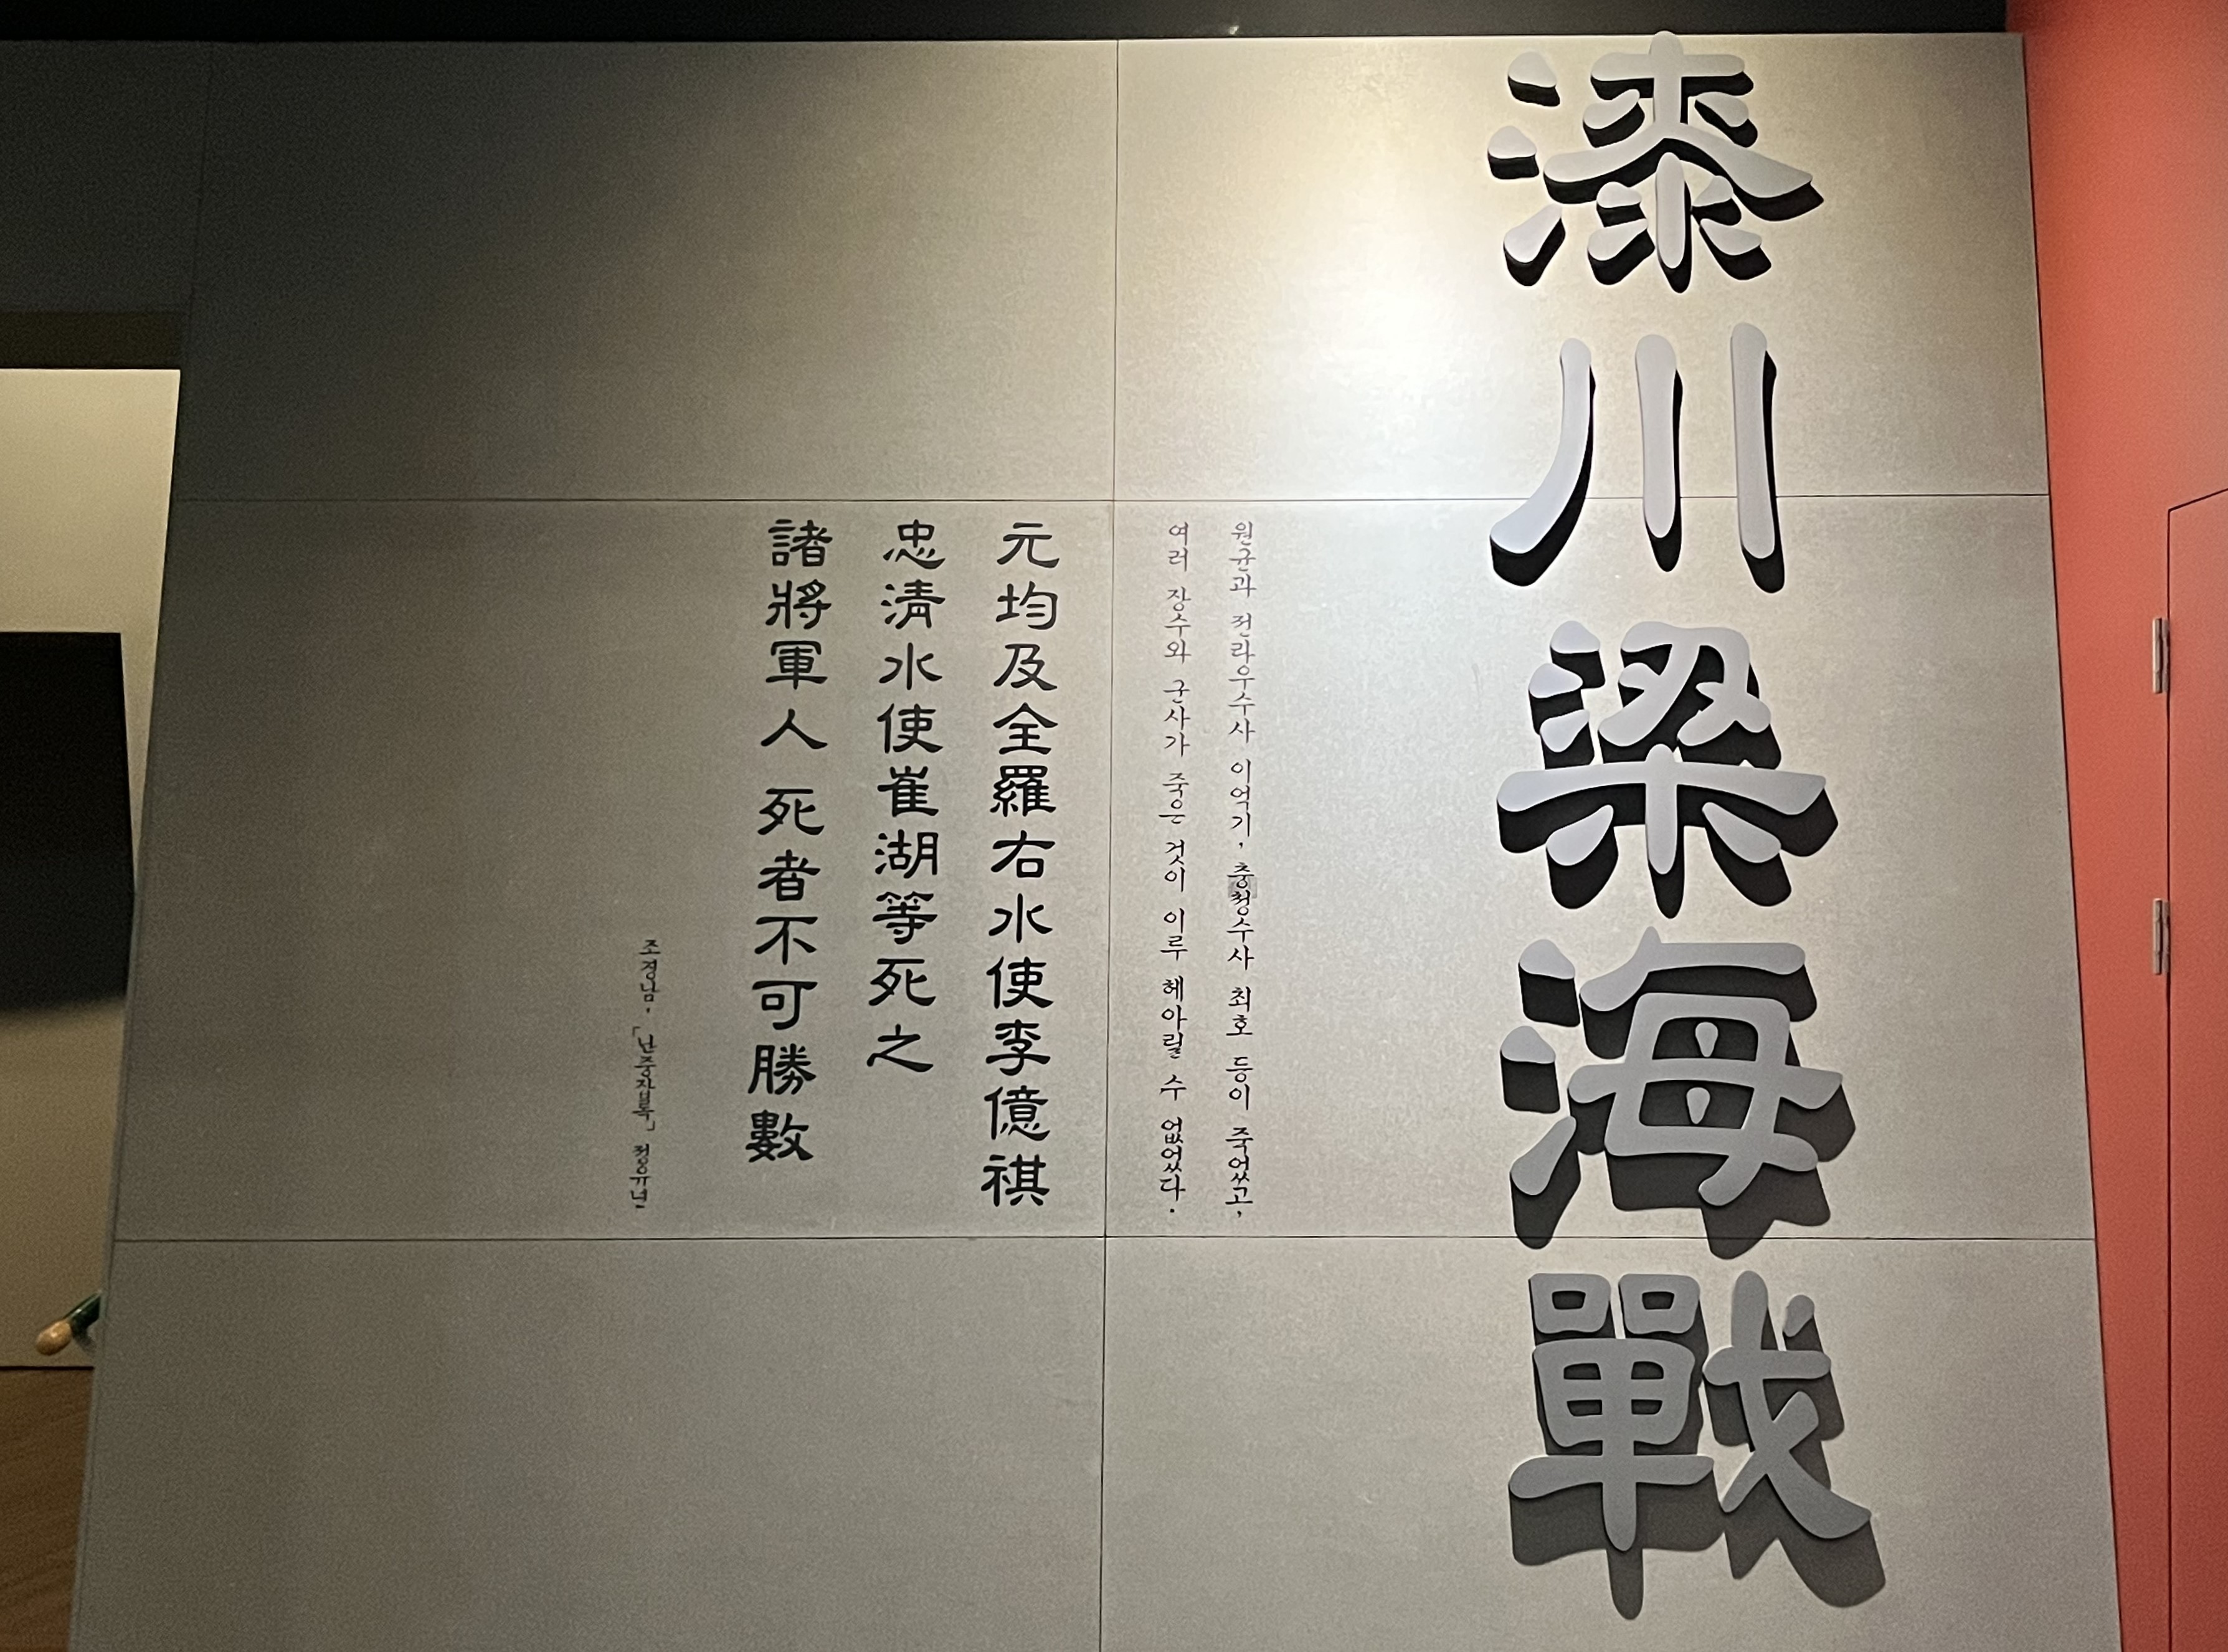 漆川梁海戰
원균과 전라우수사 이억기, 충청수사 최호 등이 죽었고,
여러 장수와 군사가 죽은 것이 이루 헤아릴 수 없었다.
元均及全羅右水使李億祺
忠淸水使崔湖等死之
諸將軍人 死者不可勝數
조경남, 「난중잡록」 정유년-